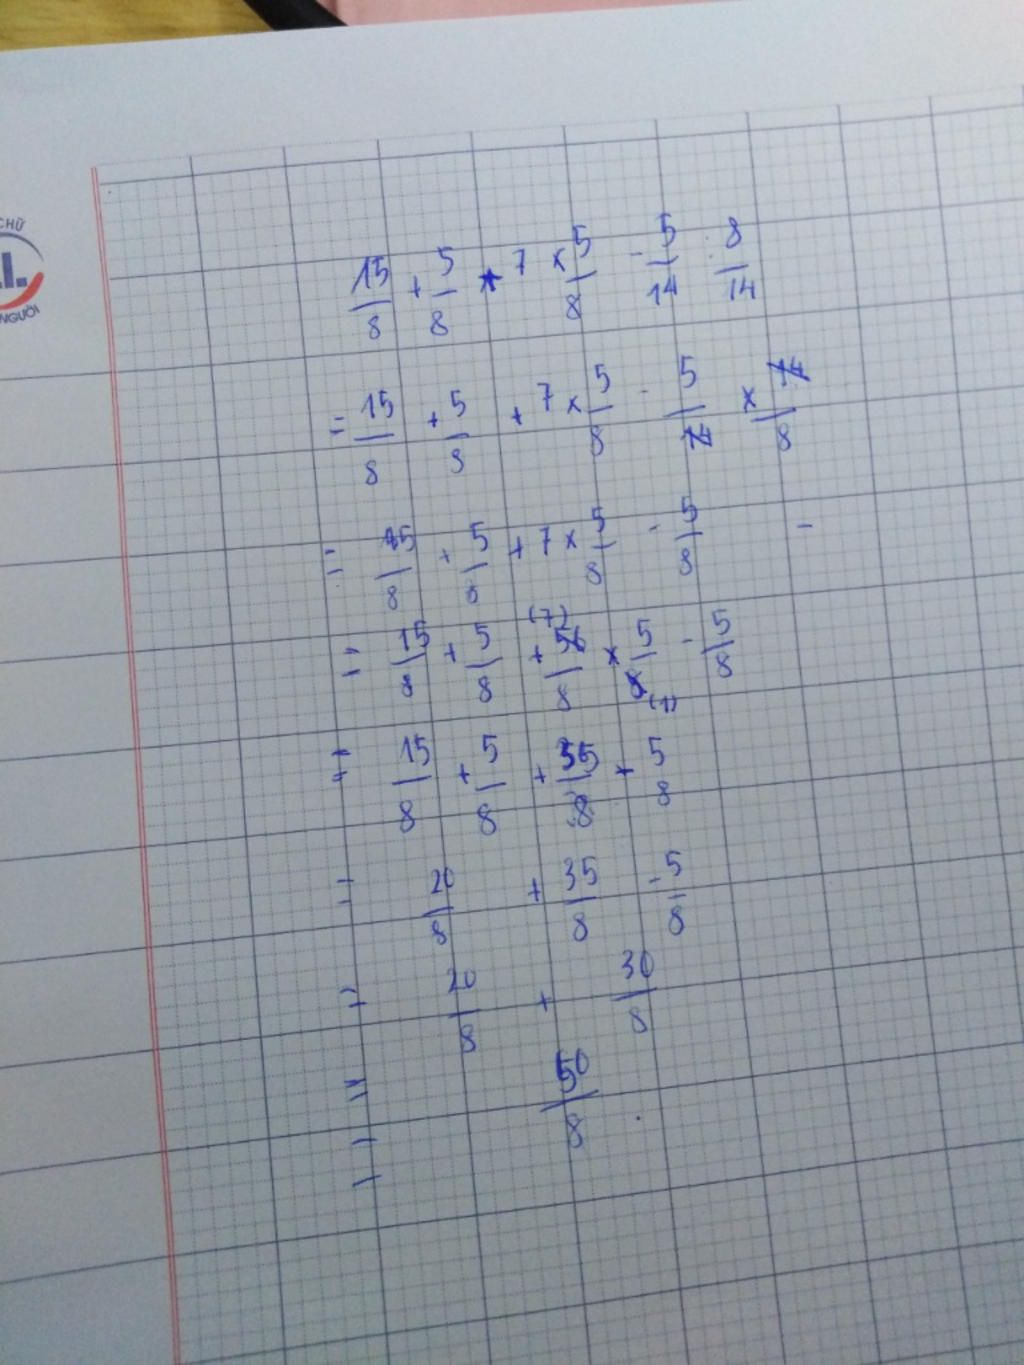 CHỮ
NGƯỜI
15/8 + 5/8 + 7 × 5/8 - 5/14 : 8/14
= 15/8 + 5/8 + 7 × 5/8 - 5/14 × 14/8
= 15/8 + 5/8 + 7 × 5/8 - 5/8 -
= 15/8 + 5/8 + 56/8 (7) × 5/8 (1) - 5/8
= 15/8 + 5/8 + 35/8 - 5/8
= 20/8 + 35/8 - 5/8
= 20/8 + 30/8
= 50/8
=